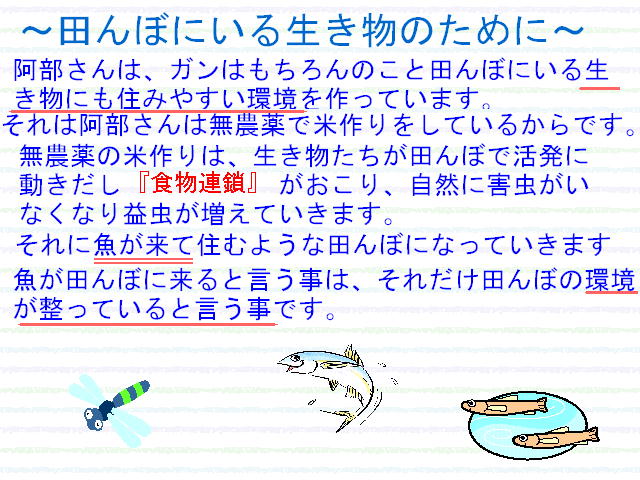 ～田んぼにいる生き物のために～
阿部さんは、ガンはもちろんのこと田んぼにいる生
き物にも住みやすい環境を作っています。
それは阿部さんは無農薬で米作りをしているからです。
無農薬の米作りは、生き物たちが田んぼで活発に
動きだし『食物連鎖』がおこり、自然に害虫がい
なくなり益虫が増えていきます。
それに魚が来て住むような田んぼになっていきます
魚が田んぼに来ると言う事は、それだけ田んぼの環境
が整っていると言う事です。